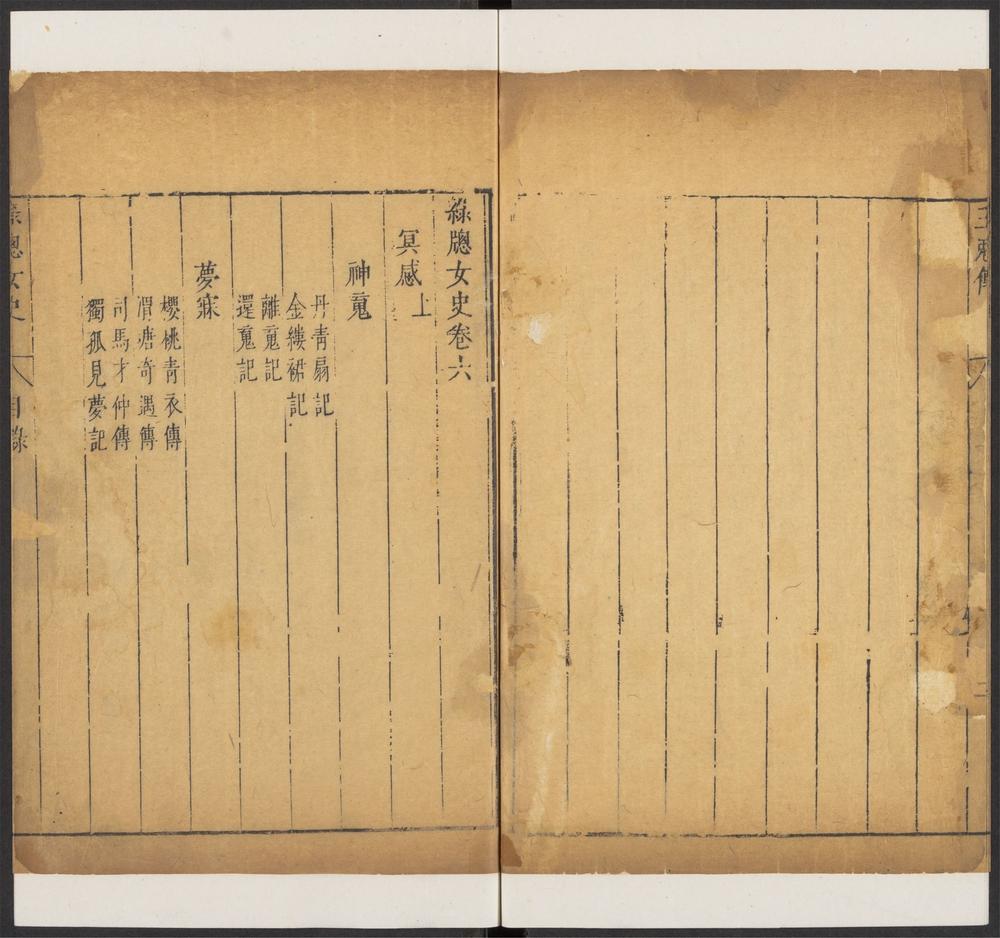 綠牕女史卷六
冥感上
神䰟
丹青扇記
金縷裙記
離䰟記
還䰟記
夢寐
櫻桃青衣傳
渭塘奇遇傳
司馬才仲傳
獨孤見夢記
綠牕女史
目錄